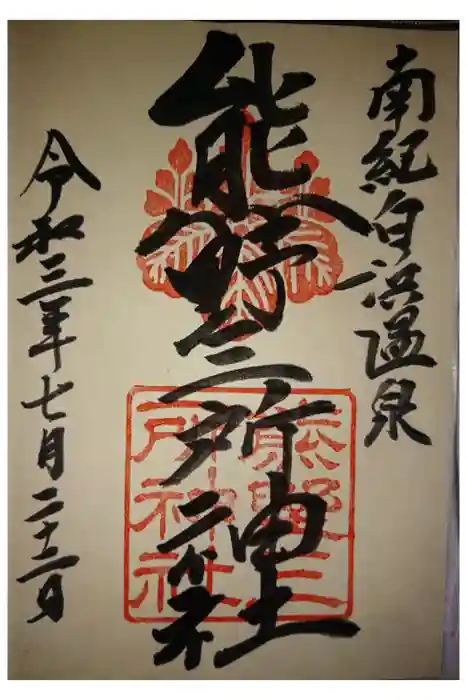 南紀白浜温泉
熊野三所神社
令和三年七月二十二日
熊野三
所神社